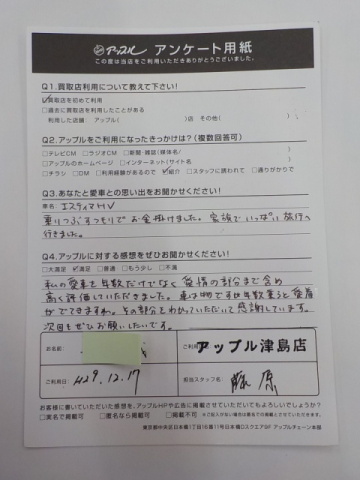 アップル アンケート用紙
この度は当店をご利用いただきありがとうございました。
Q1.買取店利用について教えて下さい!
☑買取店を初めて利用
□過去に買取店を利用したことがある
利用した店舗 アップル( )店 その他( )
Q2.アップルをご利用になったきっかけは?(複数回答可)
□テレビCM □ラジオCM □新聞・雑誌(媒体名/ )
□アップルのホームページ □インターネット(サイト名 )
□チラシ □DM □利用経験があるので ☑紹介 □スタッフに誘われて □通りがかりで
Q3.あなたと愛車との思い出をお聞かせください!
車名 エスティマHV
乗りつぶすつもりでお金掛けました。家族でいっぱい旅行へ
行きました。
Q4.アップルに対する感想をぜひお聞かせください!
□大満足 ☑満足 □普通 □もう少し □不満
私の愛車を年数だけでなく愛情の部分まで含め
高く評価していただきました。車は物ですが年数乗ると愛着
がでてきますね。その部分をわかっていただいて感謝しています。
次回もぜひお願いしたいです。
お名前
ご利用 アップル津島店
ご利用日 H29.12.17
担当スタッフ名 藤原
お客様に書いていただいた感想を、アップルHPや広告に掲載させていただいてもよろしいでしょうか?
□実名で掲載可 □匿名なら掲載可 □掲載不可
東京都中央区日本橋1丁目16番11号日本橋Cスクエア5F アップルチェーン本部